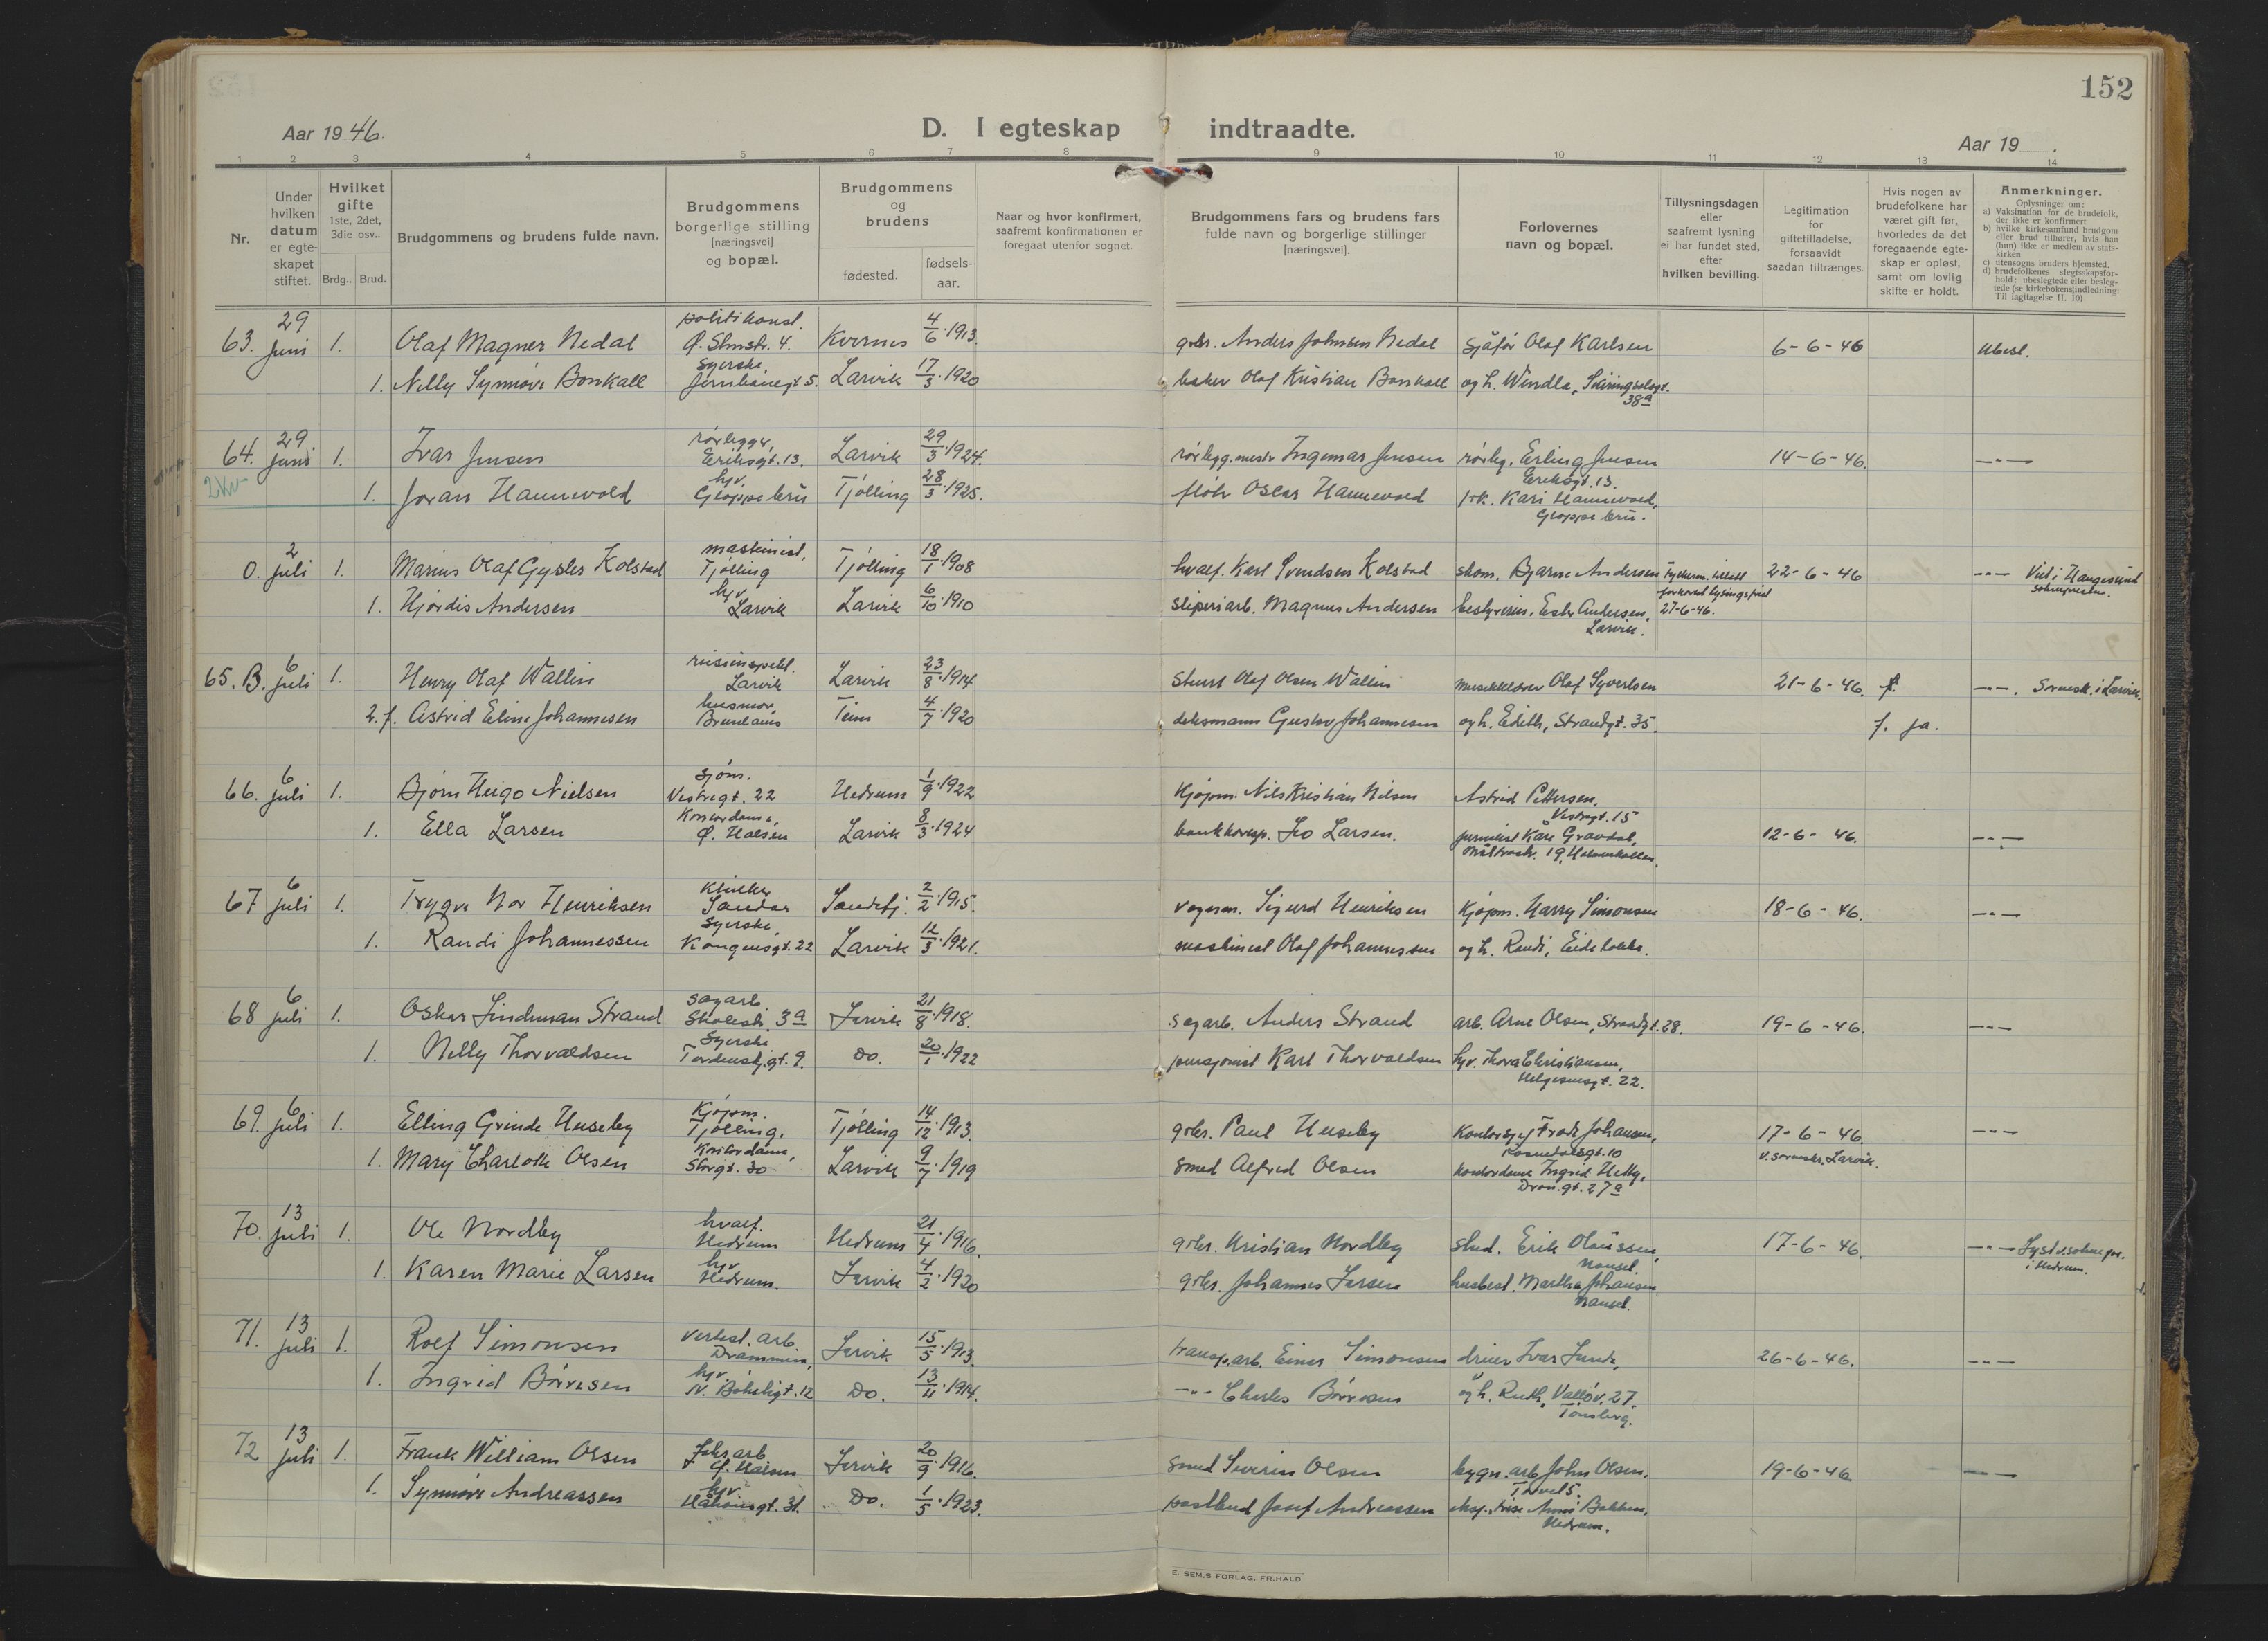 152
Aar 1946.
D. I egteskap indtraadte.
Aar 19 .
1 2 3 4 5 6 7 8 9 10 11 12 13 14
Nr.
Under hvilken datum er egte-skapet stiftet.
Hvilket gifte 1ste, 2det, 3die osv..
Brdg.. Brud.
Brudgommens og brudens fulde navn.
Brudgommens borgerlige stilling [næringsvei] og bopæl.
Brudgommens og brudens
fødested. fødsels-aar.
Naar og hvor konfirmert, saafremt konfirmationen er foregaat utenfor sognet.
Brudgommens fars og brudens fars fulde navn og borgerlige stillinger [næringsvei].
Forlovernes navn og bopæl.
Tillysningsdagen eller saafremt lysning ei har fundet sted, efter hvilken bevilling.
Legitimation for giftetilladelse, forsaavidt saadan tiltrænges.
Hvis nogen av brudefolkene har været gift før, hvorledes da det foregaaende egte-skap er opløst, samt om lovlig skifte er holdt.
Anmerkninger.
Oplysninger om:
a) Vaksination for de brudefolk, der ikke er konfirmert
b) hvilke kirkesamfund brudgom eller brud tilhører, hvis han (hun) ikke er medlem av stats-kirken
c) utensogns bruders hjemsted.
d) brudefolkenes slegtsskapsfor-hold: ubeslegtede eller besleg-tede (se kirkebokens indledning: Til iagttagelse II. 10)
63. 29 juni 1. Olaf Magner Nedal politikonst. Ø. Stmstr. 4. Kvernes 4/6 1913. gbr. Anders Johnsen Nedal sjåfør Olaf Karlsen 6-6-46 Ubesl.
1. Nelly Synnøve Bonkall Syerske, Jernbanegt. 5. Larvik 17/3 1920 baker Olaf Kristian Bonkall og h. Windla, 38a
64. 29 juni 1. Ivar Jensen rørlegger, Eriksgt. 13. Larvik 29/3 1924. rørlegg.mestr Ingemar Jensen rørleg. Erling Jensen Eriksgt. 13. 14-6-46. -"-
1. Joran Hannevold hjv. Gloppebru Tjølling 28/3 1925. Oscar Hannevold frk. Kari Hannevold, Gloppe bru.
0. 2 juli 1. Marius Olaf Gysler Kolstad maskinist, Tjølling Tjølling 18/1 1908 hvalf. Karl Svendsen Kolstad skom. Bjarne Andersen 22-6-46 -"- Viet i Haugesund
1. Hjørdis Andersen hjv. Larvik Larvik 6/10 1910 sliperiarb. Magnus Andersen bestyrerin. Ester Andersen, Larvik. 27-6-46.
65. B. 6 juli 1. Henry Olaf Wallin Larvik Larvik 23/8 1914 Olaf Olsen Wallin musikklærer Olaf Syvertsen 21-6-46. f. -"-. Sorensk. i Larvik.
2. f. Astrid Eline Johannesen husmor, Brunlanes 4/7 1920 Gustav Johannesen og h. Edith, Strandgt. 35. f. ja.
66. 6 juli 1. Bjørn Hugo Nielsen sjøm. Vestregt. 22 Hedrum 1/9 1922 Kjøpm. Nils Kristian Nilsen Astrid Pettersen, Vestregt. 15
1. Ella Larsen Kontordame, Ø. Halsen Larvik 8/3 1924 Leo Larsen. Kåre Gravdal, 12-6-46. -"-
67 6 juli 1. Trygve Nor Henriksen Sandar Sandefj. 2/2 1915. vognm. Sigurd Henriksen Kjøpm. Harry Simonsen 18-6-46. -"-
1. Randi Johannessen Syerske, Kongensgt. 22 Larvik 12/3 1921. maskinist Olaf Johannessen og h. Randi,
68 6 juli 1. Oskar Lindeman Strand sagarb. 3a Larvik 21/8 1918. sagarb. Anders Strand arb. Arne Olsen, Strandgt. 28. 19-6-46. -"-
1. Nelly Thorvaldsen Syerske Tordenskj.gt. 9. Do. 20/1 1922 pensjonist Karl Thorvaldsen hjv. Thora Christiansen, Helgesensgt. 22.
69. 6 juli 1. Elling Grinde Huseby Kjøpm. Tjølling. Tjølling 14/12 1913. gbr. Paul Huseby Frode Johansen, 17-6-46. -"-
1. Mary Charlotte Olsen Kontordame, Storgt. 30 Larvik 9/7 1919 smed Alfred Olsen kontordame Ingrid Dron.gt. 27a v. sorenskr. Larvik.
70. 13 juli 1. Ole Nordby hvalf. Hedrum Hedrum 21/4 1916. gbr. Kristian Nordby stud. Erik Olaussen, Nanset. 17-6-46. -"- Lyst v. sokne pr. i Hedrum.
1. Karen Marie Larsen hjv. Hedrum. Larvik 4/2 1920 gbr. Johannes Larsen husbest. Martha Johansen Nanset.
71. 13 juli 1. Rolf Simonsen verkst. arb. Drammen, Larvik 15/5 1913. transp.arb. Einar Simonsen Ivar 26-6-46. -"-
1. Ingrid Børresen hjv. N. Bøkeligt. 12 Do. 13/11 1914. -"- Charles Børresen og h. Ruth, Valløv. 27. Tønsberg.
72 13 juli 1. Frank William Olsen Ø. Halsen Larvik 20/9 1916. smed Severin Olsen bygn. arb. John Olsen, 19-6-46. -"-
1. Synnøve Andreassen hjv. Håkonsgt. 31. Do. 1/5 1923. postbud Josef Andreassen Bakken, Hedrum.
E. SEM.S FORLAG, FR.HALD